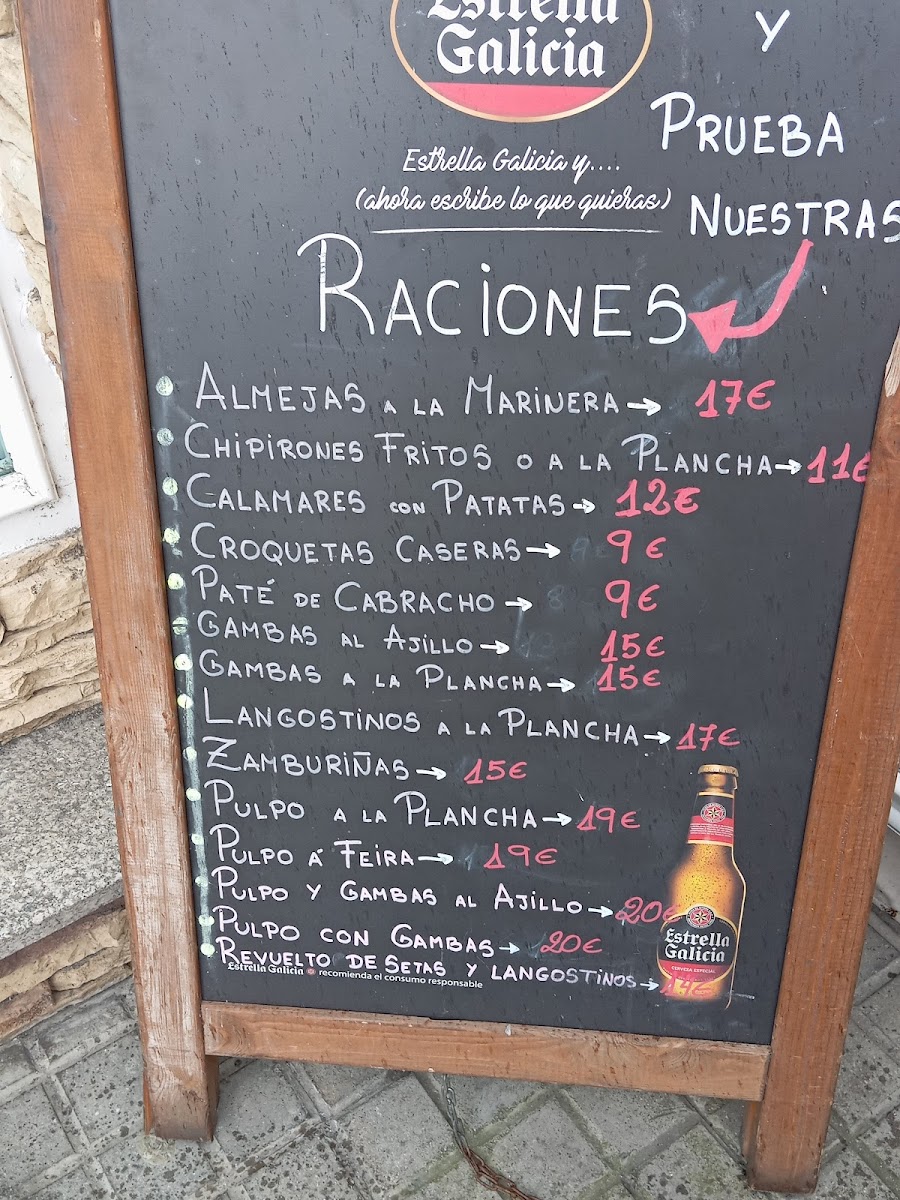 Estrella
Galicia
Y
PRUEBA
NUESTRAS
Estrella Galicia y....
(ahora escribe lo que quieras)
RACIONES
ALMEJAS A LA MARINERA → 17€
CHIPIRONES FRITOS O A LA PLANCHA → 11€
CALAMARES CON PATATAS → 12€
CROQUETAS CASERAS → 9€
PATÉ DE CABRACHO → 9€
GAMBAS AL AJILLO → 15€
GAMBAS A LA PLANCHA → 15€
LANGOSTINOS A LA PLANCHA → 17€
ZAMBURIÑAS → 15€
PULPO A LA PLANCHA → 19€
PULPO Á FEIRA → 19€
PULPO Y GAMBAS AL AJILLO → 20€
PULPO CON GAMBAS → 20€
REVUELTO DE SETAS Y LANGOSTINOS →
Estrella Galicia recomienda el consumo responsable
Estrella
Galicia
CERVEZA ESPECIAL